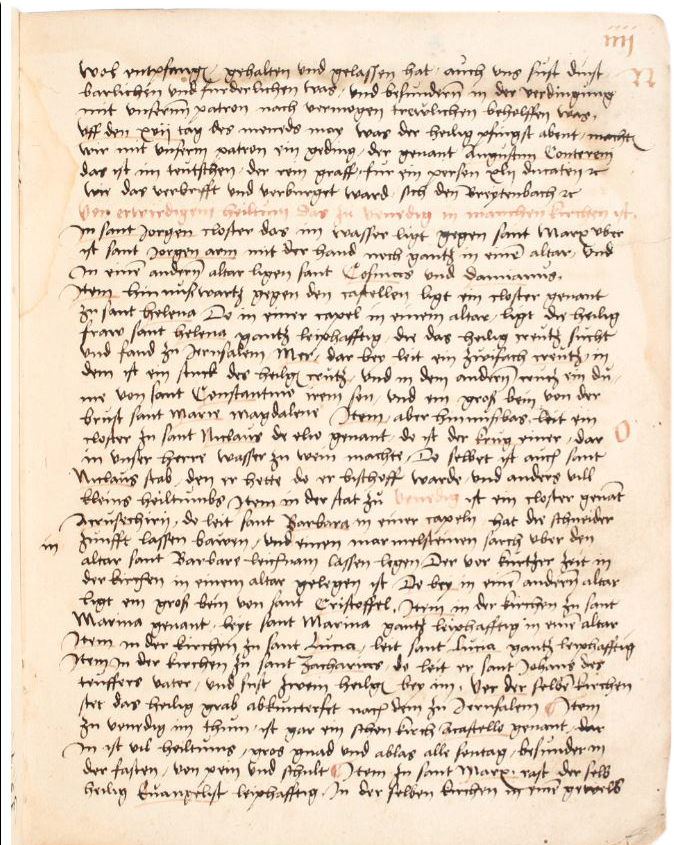 iiii
wol entpfangen gehalten und gelassen hat, auch uns sust dinst
barlichen und furderlichen was, und besundern in der verdingung
mit unserm patron nach vermogen trewlichen beholffen was.
uff den xvij tag des moneds may was der heilig pfingst abent, machten
wir mit unserm patron ein geding, der genant Augustin Conteren
das ist im teutschen, der rem graff, fur ein person xlij ducaten rc
wie das verbrifft und verburget ward, sich den Breytenbach rc
Von erwirdigem heiltum das zu venedig in manchen kirchen ist.
In sant Jorgen closter das im wasser ligt gegen sant Marx uber
ist sant Jorgen arm mit der hand noch gantz in einem altar, Und
in eine andern altar ligen sant Cosmas und damianus.
Item hin nuswartz gegen den castellen ligt ein closter genant
zu sant helena Do in einer capel in einem altar, ligt die heilig
fraw sant helena gantz leiphafftig, die das heilig creutz sucht
und fand zu Jerusalem, Mer, dar bey leit ein zwifach creutz, in
dem ist ein stuck des heilgen creutz, und in dem andern creutz ein du,
me von sant Constantino irem son, und ein groß bein von der
brust sant Marie Magdalene Item, aber hinnusbas leit ein
closter zu sant Niclaus de elio genant, do ist der krug einer, dar
in unser herre wasser zu wein machte, Do selbst ist auch sant
Niclaus stab, den er hette do er bischoff warde, und anders vill
kleins heiltumbs Item in der stat zu venedig ist ein closter genant
Acrusechirij, do leit sant Barbara in einer capeln hat die schneider
zunfft lassen bawen, und einen marmelsteinen sarch uber den
altar sant Barbare leichnam lassen legen Der vor kurtzer zeit in
der kirchen in einem altar gelegen ist Do bey in eine andern altar
ligt ein groß bein von sant Cristoffel, Item in der kirchen zu sant
Marina genant, leyt sant Marina gantz leiphafftig in eine altar
Item in der kirchen zu sant Lucia, leit sant Lucia gantz leiphafftig
Item in der kirchen zu sant Zacharias do leit er sant Johans des
teuffers vater, und sust zwen heilgen bey im, Vor der selbe kirchen
stet das heilig grab abkunterfet nach dem zu Jerusalem Item
zu venedig im thum, ist gar ein schon kirch Acastello genant, dar
In ist vil heiltums, gros gnad und ablas alle sontag, besunder in
der fasten, von pein und schult Item zu sant Marx, rast der selb
heilig Euangelist leiphafftig, In der selben kirchen in eine gewelb